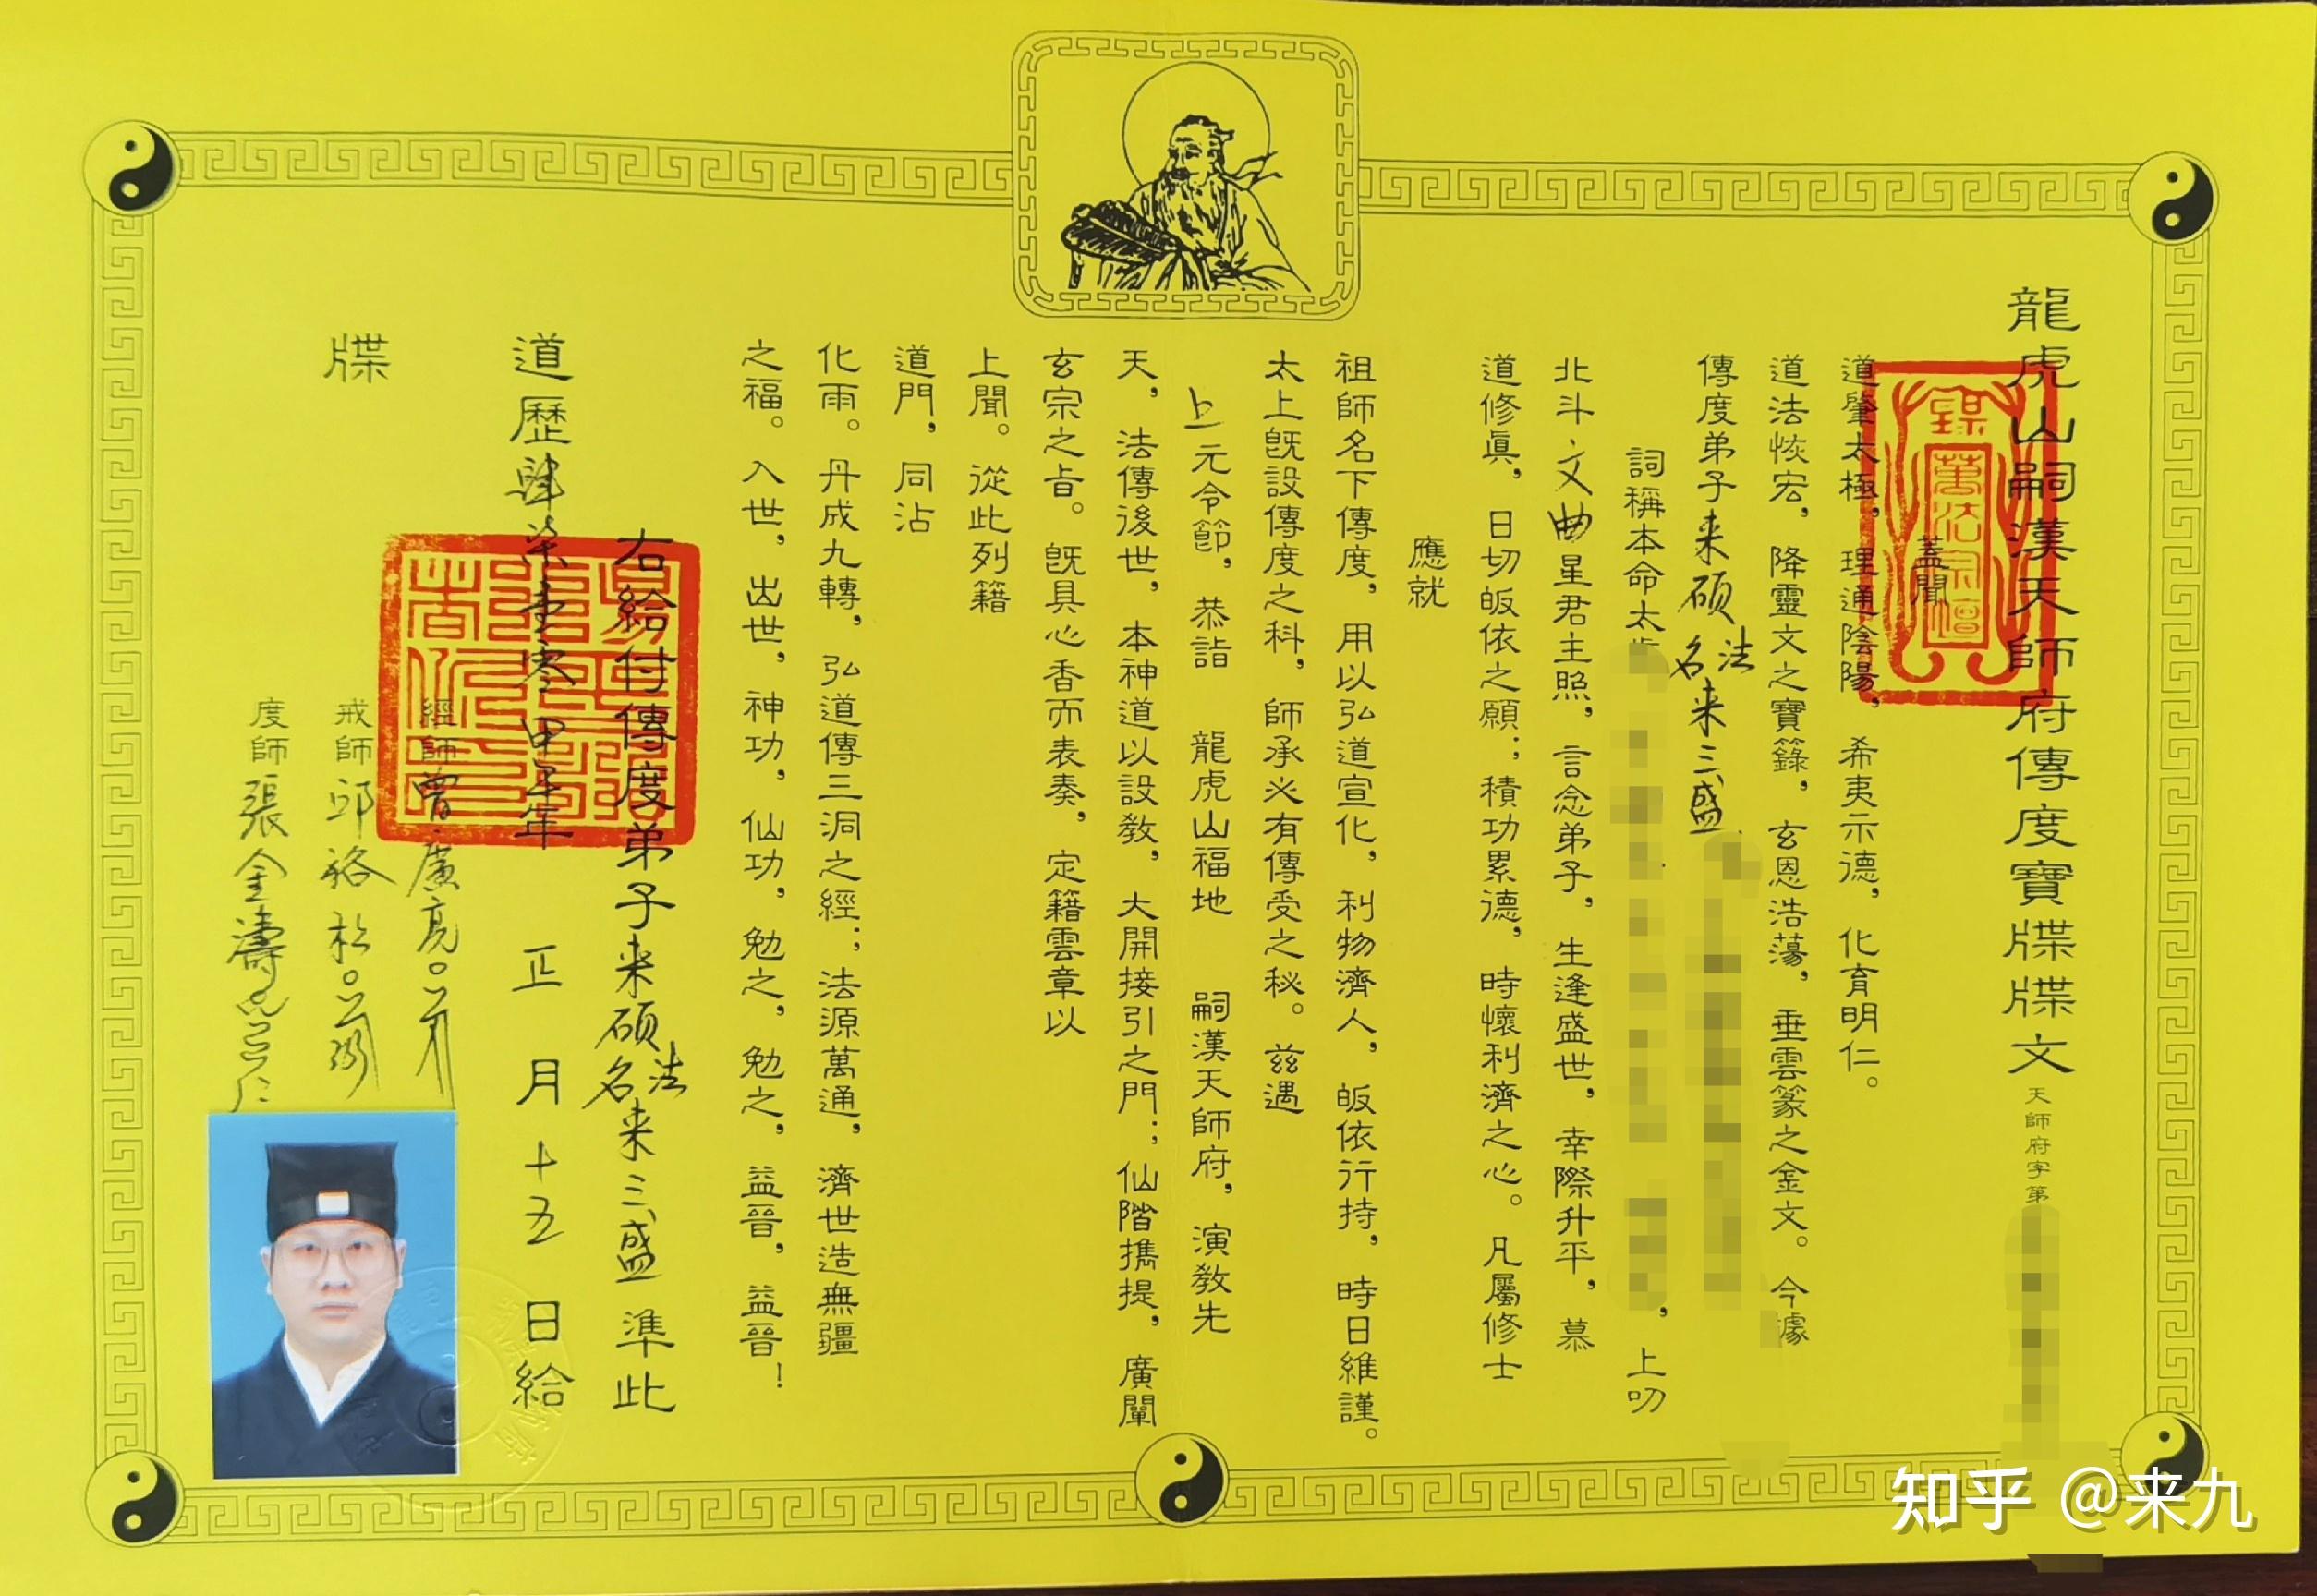 龍虎山嗣漢天師府傳度寶牒牒文 天師府字第
蓋聞
道肇太極，理通陰陽，希夷示德，化育明仁。
道法恢宏，降靈文之寶籙，玄恩浩蕩，垂雲篆之金文。今據
傳度弟子来硕 法名来三盛
詞稱本命太歲，上叨
北斗文曲星君主照，言念弟子，生逢盛世，幸際升平，慕
道修眞，日切皈依之願；積功累德，時懷利濟之心。凡屬修士
應就
祖師名下傳度，用以弘道宣化，利物濟人，皈依行持，時日維謹。
太上旣設傳度之科，師承必有傳受之秘。兹遇
上元令節，恭詣 龍虎山福地 嗣漢天師府，演教先
天，法傳後世，本神道以設教，大開接引之門；仙階攜提，廣闡
玄宗之旨。旣具心香而表奏，定籍雲章以
上聞。從此列籍
道門，同沾
化雨。丹成九轉，弘道傳三洞之經；法源萬通，濟世造無疆
之福。入世，出世，神功，仙功，勉之，勉之，益晉，益晉！
右給付傳度弟子来硕 法名来三盛 準此
道歷肆柒壹零甲辰年 正月十五日給
牒
經師曾廣亮
戒師邱裕松
度師張金濤
萬法宗壇
知乎 @来九